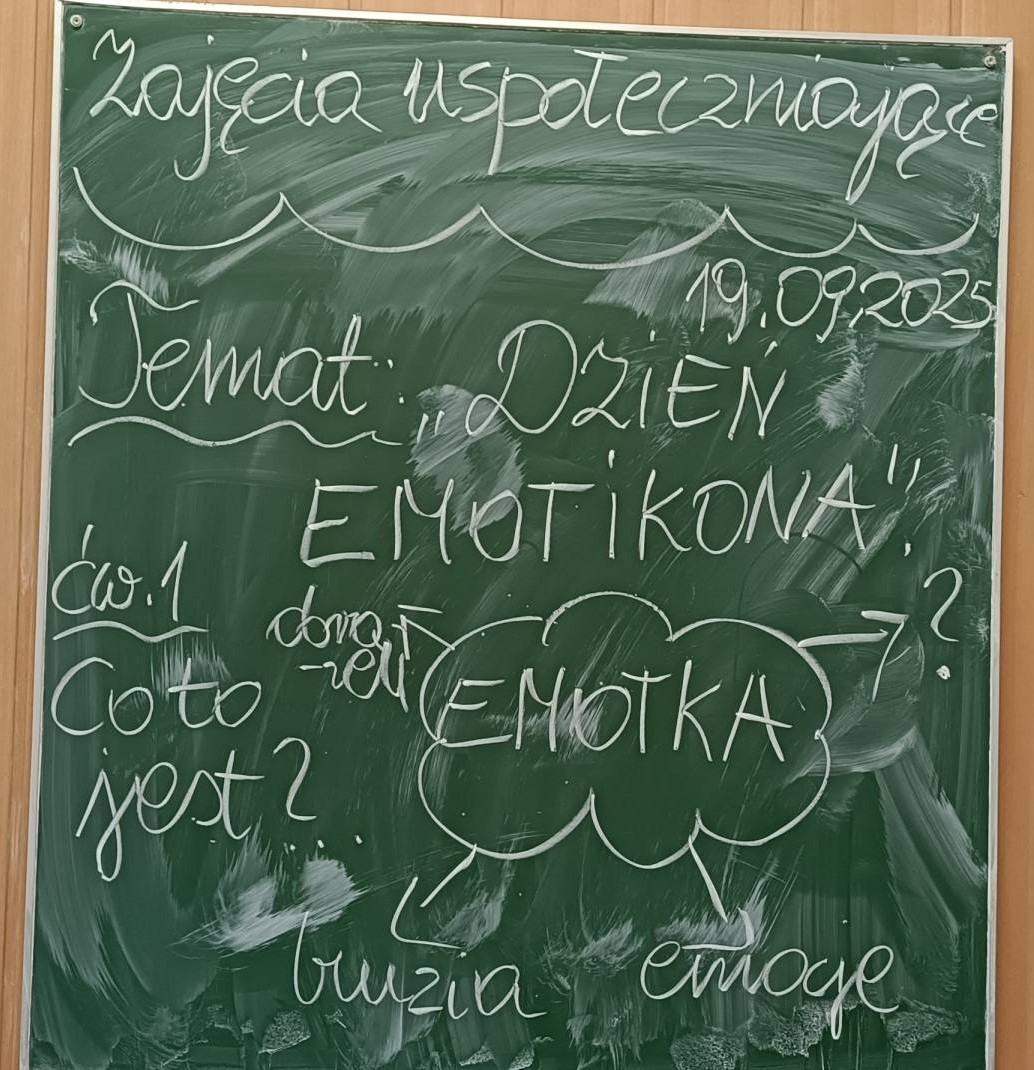 Zajęcia uspołeczniające
19.09.2025
Temat: „DZIEŃ
EMOTIKONA”.
ćw. 1
Co to
jest?...
EMOTKA
?
buzia
emocje